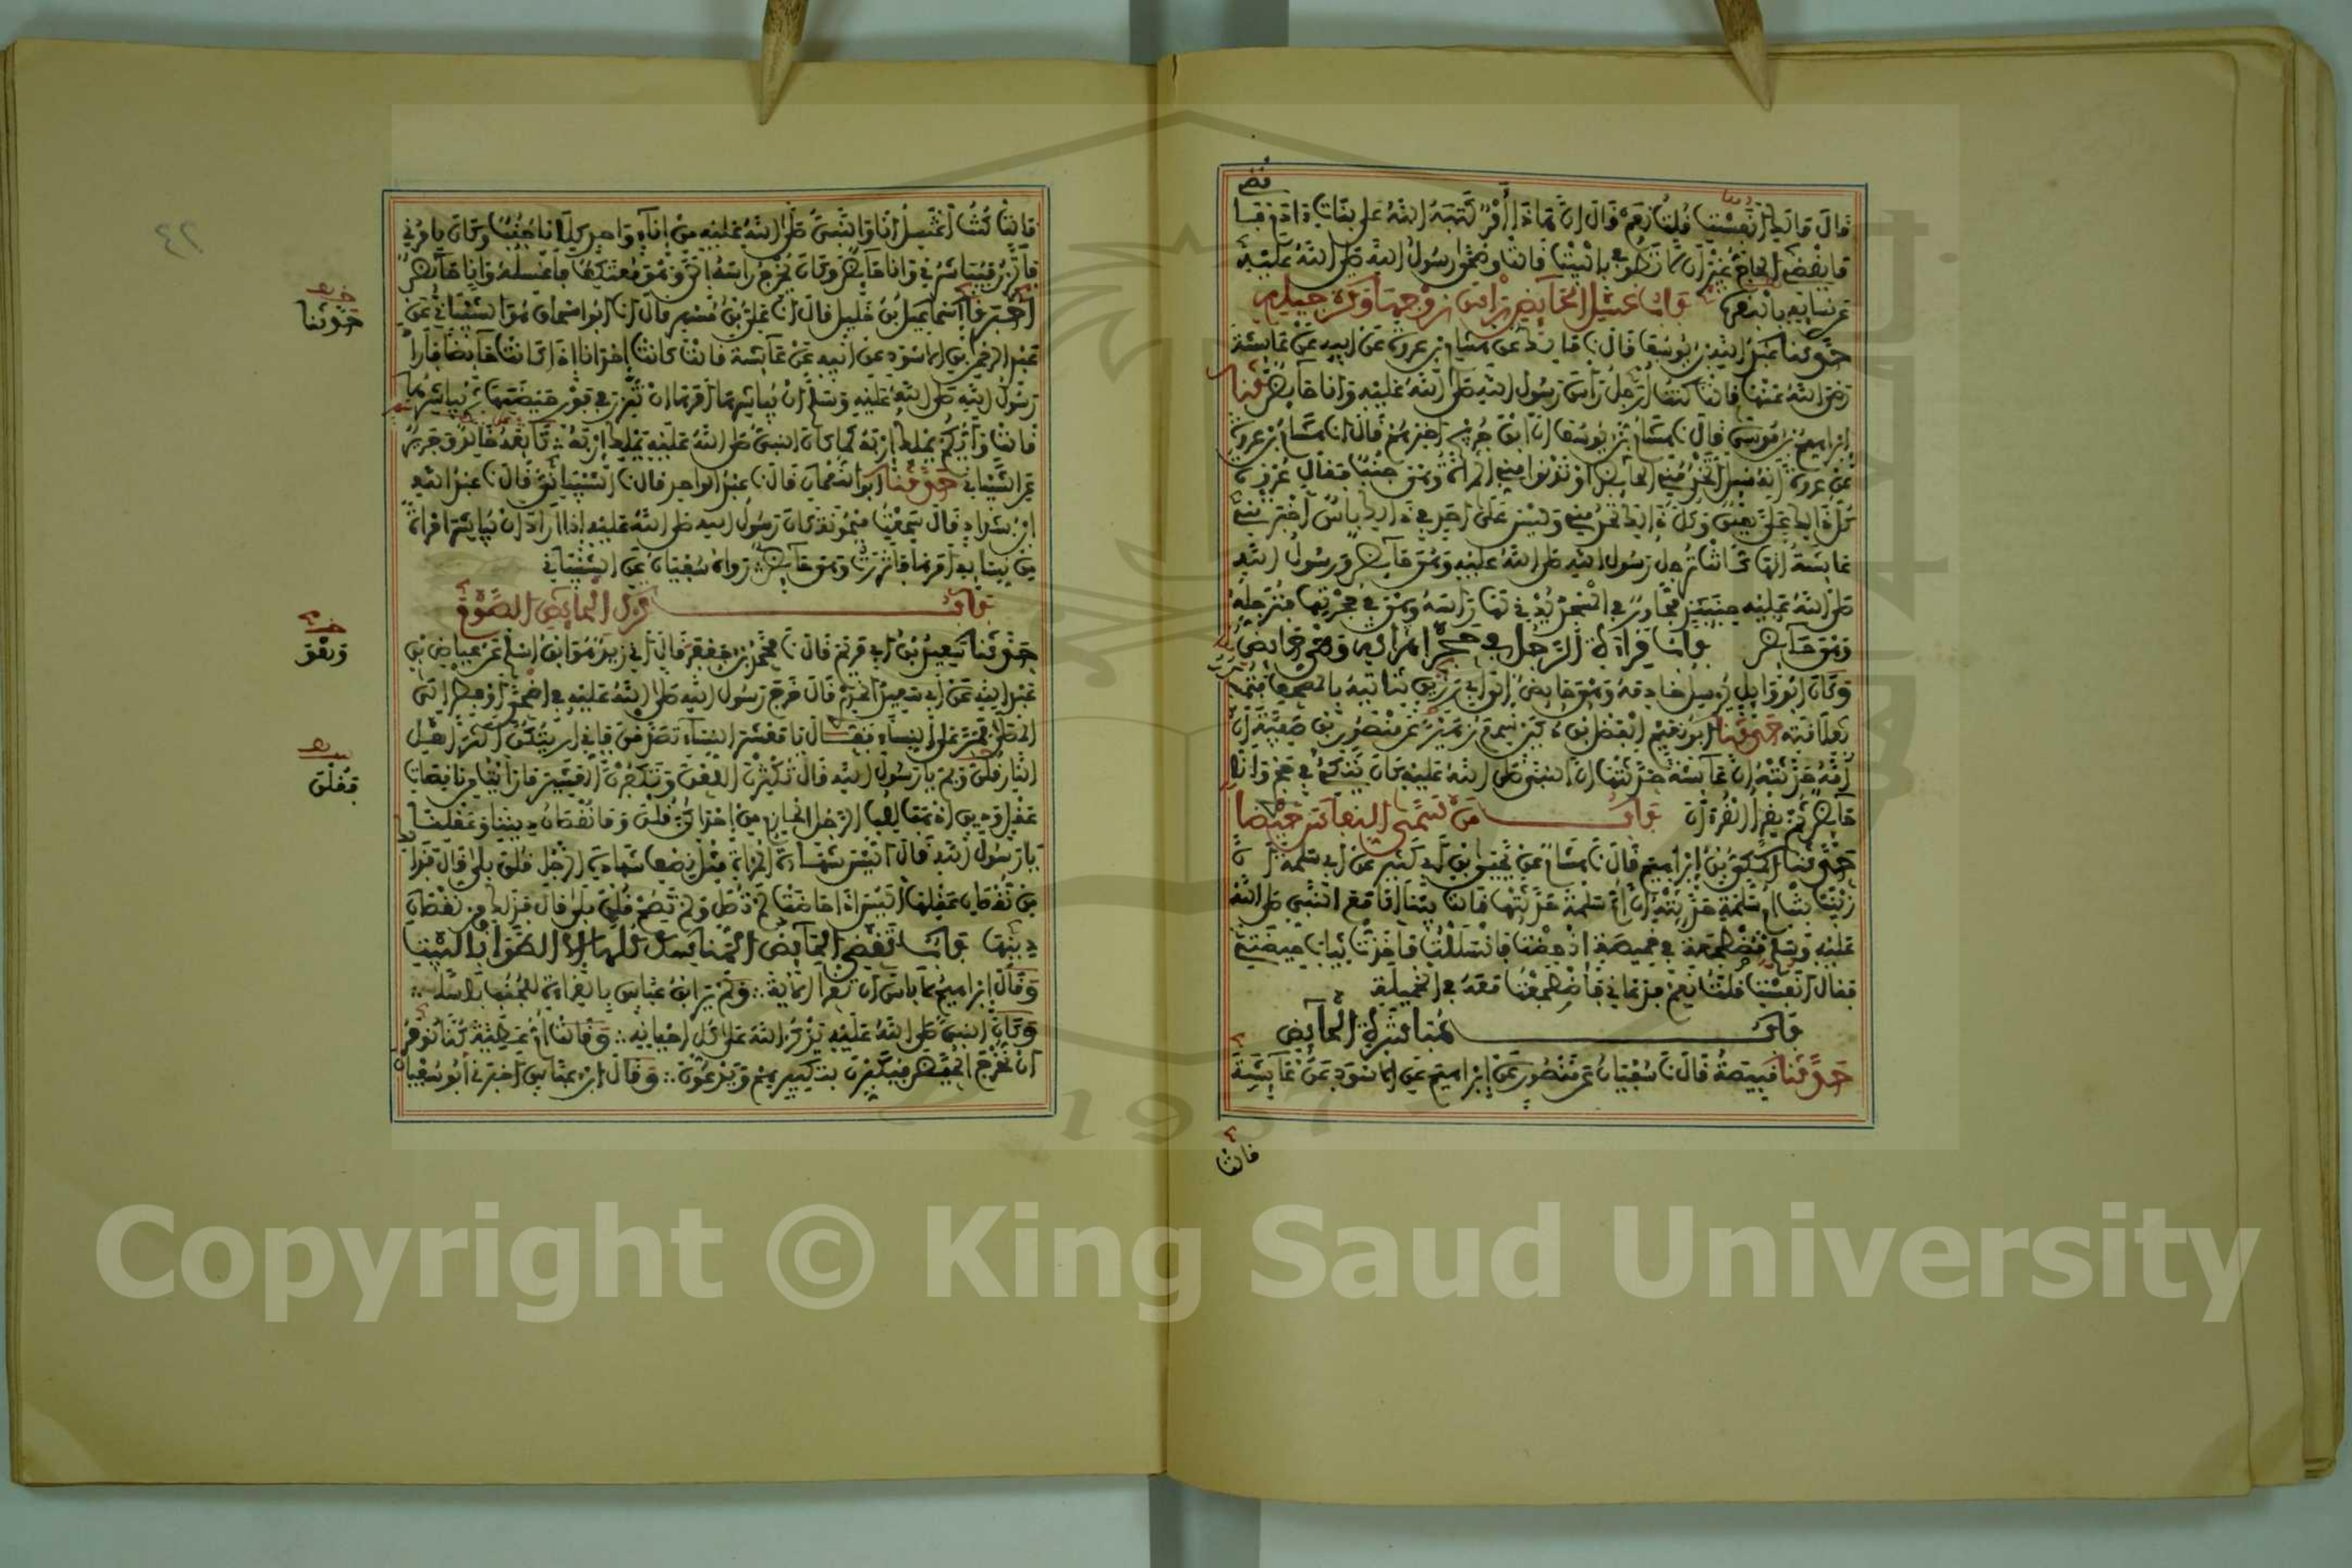 قال مالك أنفست قلت نعم قال إن هاذا أمر كتبه الله على بنات ءادم فاقض
ما يقضي الحاج غير أن لا تطوفي بالبيت قالت وضحى رسول الله صلى الله عليه
عن نسائه بالبقر باب غسل الحائض رأس زوجها وترجيله
حدثنا عبد الله بن يوسف قال نا مالك عن هشام بن عروة عن أبيه عن عائشة
رضي الله عنها قالت كنت أرجل رأس رسول الله صلى الله عليه وأنا حائض حدثنا
إبراهيم بن موسى قال نا هشام بن يوسف أن ابن جريج أخبرهم قال أنا هشام بن عروة
عن عروة أنه سئل أتخدمني الحائض أو تدنو مني المرأة وهي جنب فقال عروة
كل ذلك علي هين وكل ذلك تخدمني وليس على أحد في ذلك بأس أخبرتني
عائشة أنها كانت ترجل رسول الله صلى الله عليه وهي حائض ورسول الله
صلى الله عليه حينئذ مجاور في المسجد يدني لها رأسه وهي في حجرتها فترجله
وهي حائض باب قراءة الرجل في حجر امرأته وهي حائض
وكان أبو وائل يرسل خادمه وهي حائض إلى أبي رزين فتأتيه بالمصحف فتمسكه
بعلاقته حدثنا أبو نعيم الفضل بن دكين سمع زهيرا عن منصور بن صفية أن
أمه حدثته أن عائشة حدثتها أن النبي صلى الله عليه كان يتكئ في حجري وأنا
حائض ثم يقرأ القرءان باب من سمى النفاس حيضا
حدثنا المكي بن إبراهيم قال نا هشام عن يحيى بن أبي كثير عن أبي سلمة أن
زينب بنت أم سلمة حدثته أن أم سلمة حدثتها قالت بينا أنا مع النبي صلى الله
عليه وسلم مضطجعة في خميصة إذ حضت فانسللت فأخذت ثياب حيضتي
فقال أنفست قلت نعم فدعاني فاضطجعت معه في الخميلة
باب مباشرة الحائض
حدثنا قبيصة قال نا سفيان عن منصور عن إبراهيم عن الأسود عن عائشة
قالت
٤٢
قالت كنت أغتسل أنا والنبي صلى الله عليه من إناء واحد كلانا جنب وكان يأمرني
فأتزر فيباشرني وأنا حائض وكان يخرج رأسه إلي وهو معتكف فأغسله وأنا حائض
أخبرنا إسماعيل بن خليل قال أنا علي بن مسهر قال أنا أبو إسحاق هو الشيباني عن
حدثنا
عبد الرحمن بن الأسود عن أبيه عن عائشة قالت كانت إحدانا إذا كانت حائضا فأراد
رسول الله صلى الله عليه وسلم أن يباشرها أمرها أن تتزر في فور حيضتها ثم يباشرها
قالت وأيكم يملك إربه كما كان النبي صلى الله عليه يملك إربه تابعه خالد وجرير
عن الشيباني حدثنا أبو النعمان قال نا عبد الواحد قال نا الشيباني قال نا عبد الله
ابن شداد قال سمعت ميمونة كان رسول الله صلى الله عليه إذا أراد أن يباشر امرأة
من نسائه أمرها فاتزرت وهي حائض رواه سفيان عن الشيباني
باب ترك الحائض الصوم
حدثنا سعيد بن أبي مريم قال نا محمد بن جعفر قال أني زيد هو ابن أسلم عن عياض بن
وهو
عبد الله عن أبي سعيد الخدري قال خرج رسول الله صلى الله عليه في أضحى أو فطر إلى
المصلى فمر على النساء فقال يا معشر النساء تصدقن فإني أريتكن أكثر أهل
النار فقلن وبم يا رسول الله قال تكثرن اللعن وتكفرن العشير ما رأيت من ناقصات
فقلن
عقل ودين أذهب للب الرجل الحازم من إحداكن قلن وما نقصان ديننا وعقلنا
يا رسول الله قال أليس شهادة المرأة مثل نصف شهادة الرجل قلن بلى قال فذلك
من نقصان عقلها أليس إذا حاضت لم تصل ولم تصم قلن بلى قال فذلك من نقصان
دينها باب تقضي الحائض المناسك كلها إلا الطواف بالبيت
وقال إبراهيم لا بأس أن تقرأ الآية ولم ير ابن عباس بالقراءة للجنب بأسا
وكان النبي صلى الله عليه يذكر الله على كل أحيانه وقالت أم عطية كنا نؤمر
أن نخرج الحيض فيكبرن بتكبيرهم ويدعون وقال ابن عباس أخبرني أبو سفيان
Copyright © King Saud University
1957